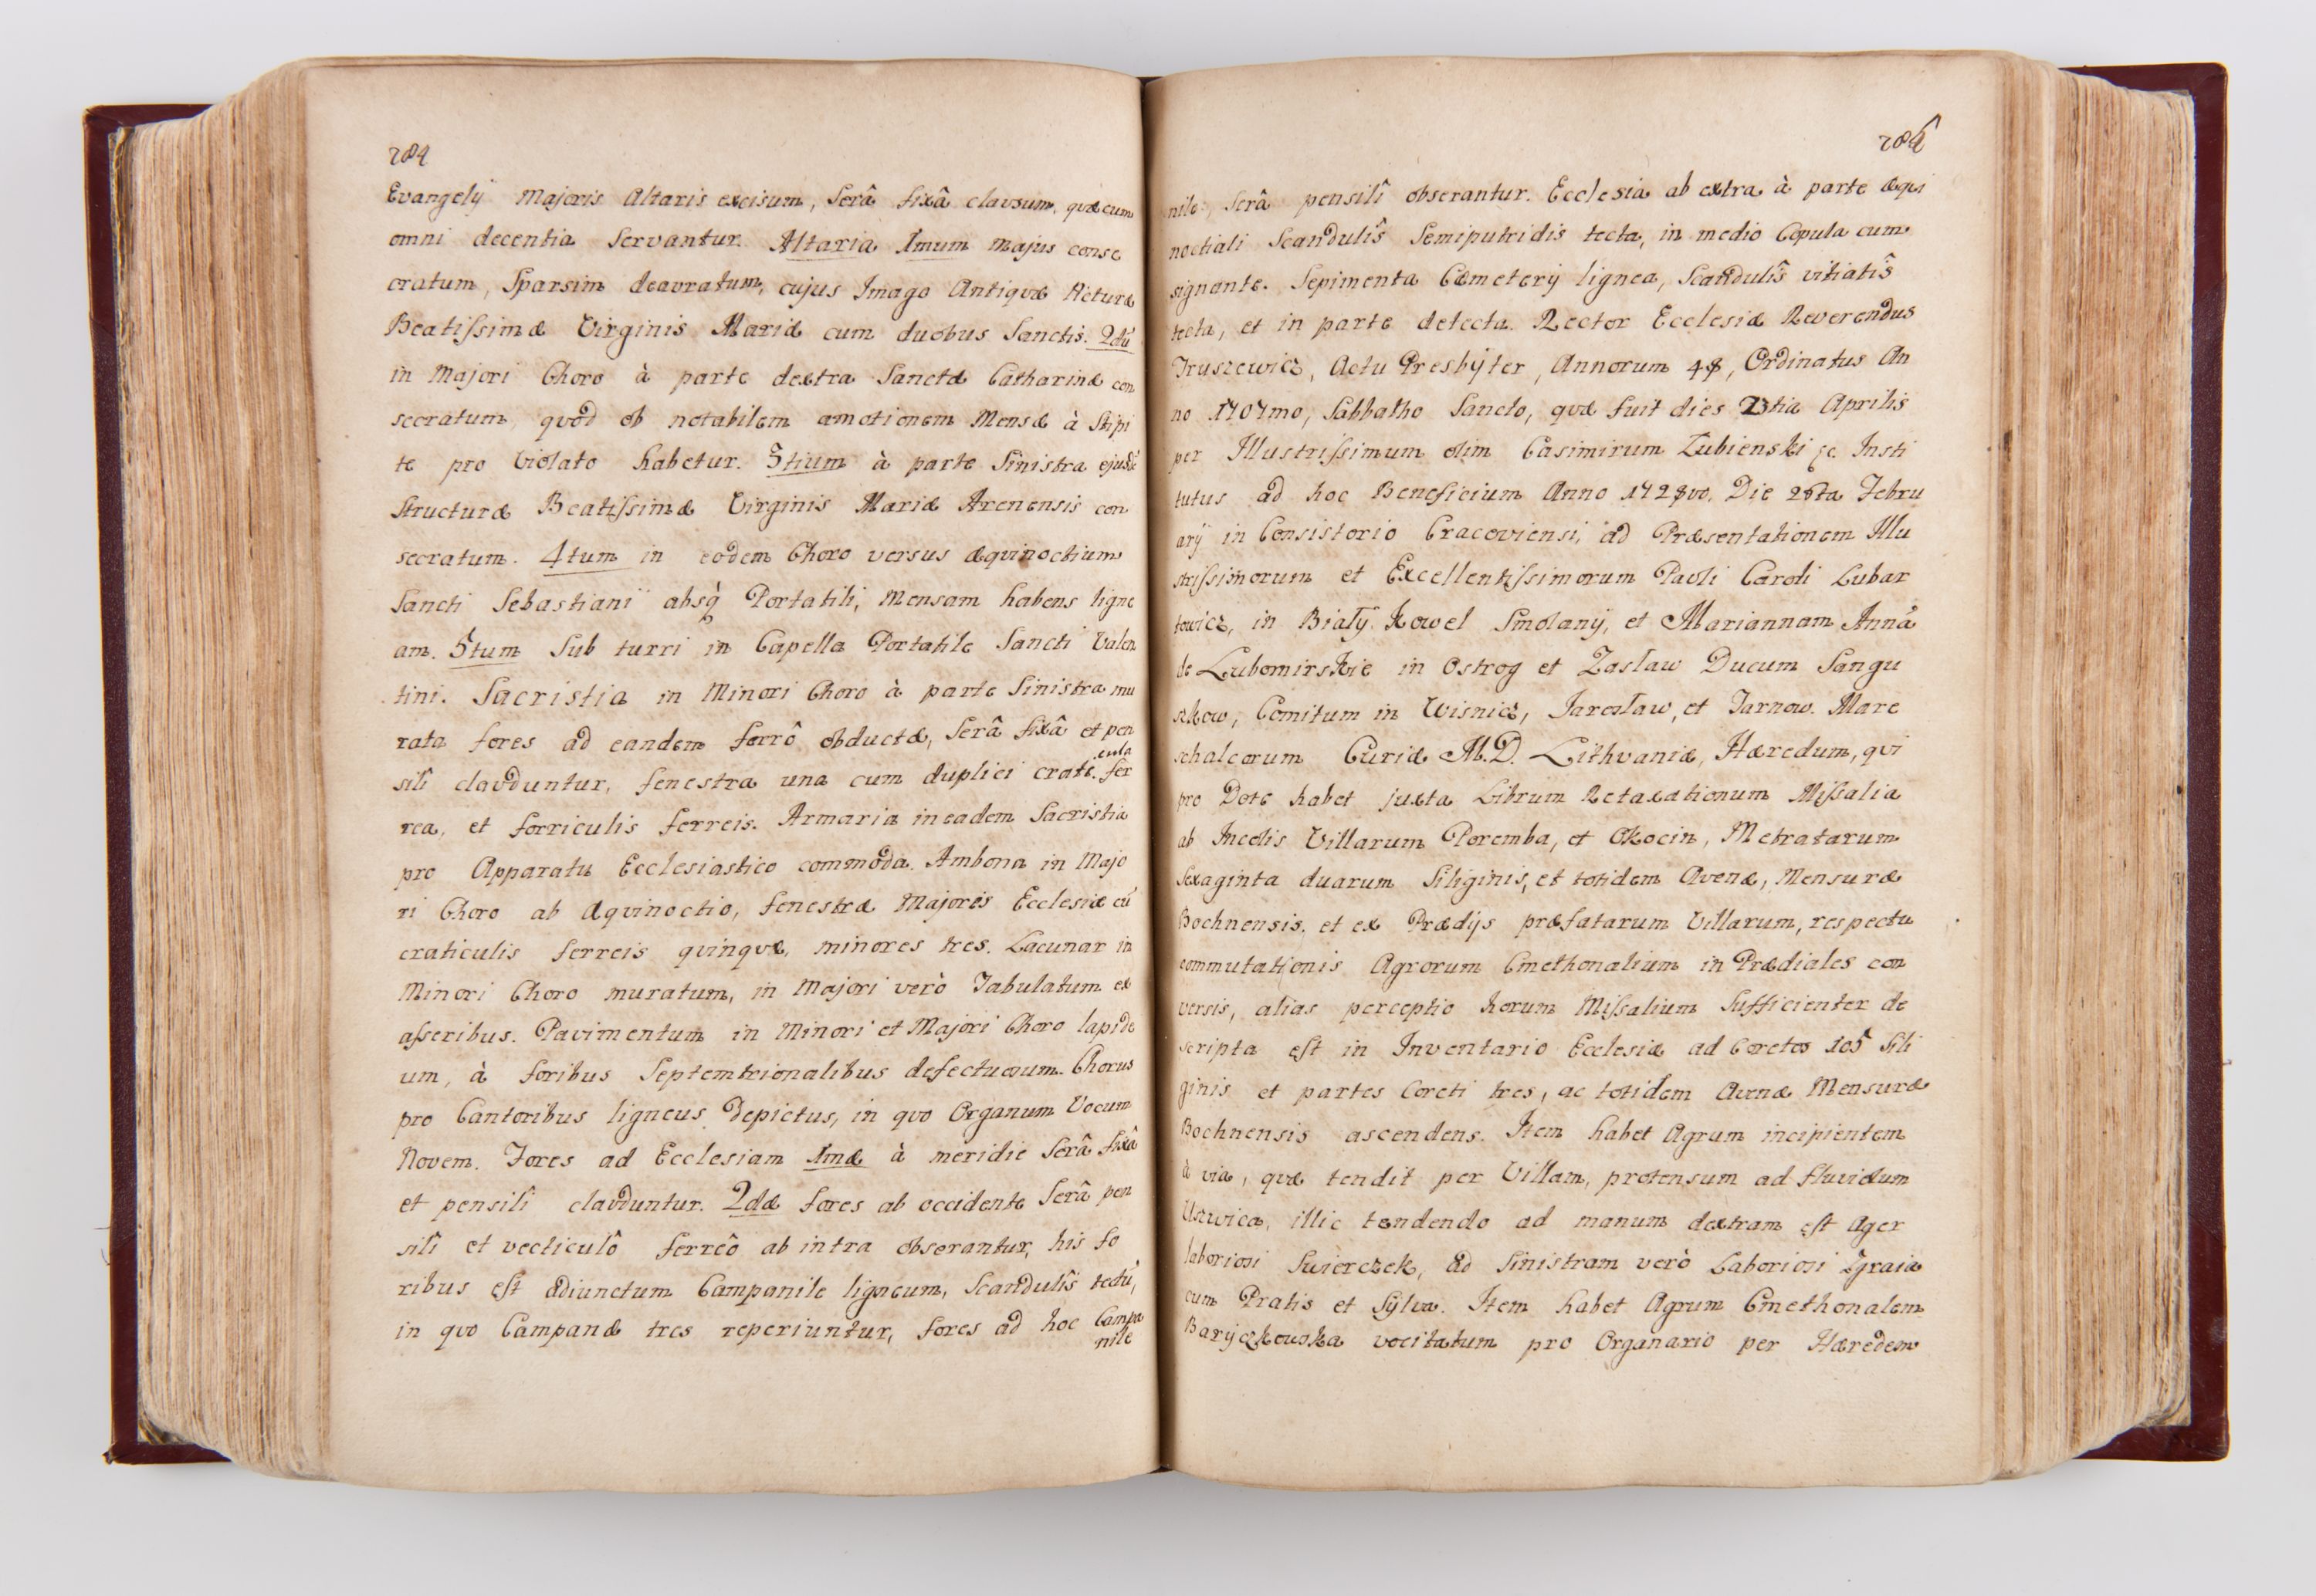 284
Evangelÿ Majoris Altaris excisum, Serâ fixâ clausum, quæ cum
omni decentia Servantur. Altaria 1mum majus conse
cratum, Sparsim deauratum, cujus Imago Antiquæ Picturæ
Beatissimæ Virginis Mariæ cum duobus Sanctis. 2dũ
in Majori Choro à parte dextra Sanctæ Catharinæ con
secratum, quod ob notabilem amotionem Mensæ à Stipi
te pro Violato habetur. 3tium à parte Sinistra ejusdẽ
Structuræ Beatissimæ Virginis Mariæ Arenensis con
secratum. 4tum in eodem Choro versus æquinoctium
Sancti Sebastiani absq̀ Portatili, Mensam habens ligne
am. 5tum Sub turri in Capella Portatile Sancti Valen
tini. Sacristia in Minori Choro à parte Sinistra mu
rata fores ad eandem ferrô obductæ, Serâ fixâ et pen
silî clauduntur, fenestra una cum duplici crate. cula fer
rea, et forriculis ferreis. Armaria in eadem Sacristia
pro Apparatu Ecclesiastico commoda. Ambona in Majo
ri Choro ab æquinoctio, fenestræ Majores Ecclesiæ cũ
craticulis ferreis quinquæ, minores tres. Lacunar in
Minori Choro muratum, in Majori verò Tabulatum ex
asseribus. Pavimentum in Minori et Majori Choro lapide
um, à foribus Septemtrionalibus defectuosum. Chorus
pro Cantoribus ligneus depictus, in quo Organum Vocum
Novem. Fores ad Ecclesiam 1mæ à meridie Serâ fixâ
et pensilî clauduntur. 2dæ fores ab occidente Serâ pen
silî et vecticulô ferreô ab intra obserantur, his fo
ribus est adiunctum Campanile ligneum, Scandulîs tectũ,
in quo Campanæ tres reperiuntur, fores ad hoc Campa
nile
285
nile, Serâ pensilî obserantur. Ecclesia ab extra à parte æqui
noctiali Scandulîs Semiputridis tecta, in medio Copula cum
signante. Sepimenta Cæmeterÿ lignea, Scandulîs vitiatîs
tecta, et in parte detecta. Rector Ecclesiæ Reverendus
Truszewicz, Actu Presbÿter, Annorum 48, Ordinatus An
no 1707mo, Sabbatho Sancto, quæ fuit dies 23tia Aprilis
per Illustrissimum olim Casimirum Łubienski &c. Insti
tutus ad hoc Beneficium Anno 1728vo, Die 26ta Febru
arÿ in Consistorio Cracoviensi, ad Præsentationem Illu
strissimorum et Excellentissimorum Pauli Caroli Lubar
towicz, in Białÿ Kowel Smolanÿ, et Mariannam Annã
de Lubomirskie in Ostrog et Zasław Ducum Sangu
szkow, Comitum in Wisnicz, Jarosław, et Tarnow. Mare
schalcorum Curiæ M.D. Lithvaniæ, Hæredum, qui
pro Dote habet juxta Librum Retaxationum Missalia
ab Incolis Villarum Poremba, et Okocin, Metratarum
Sexaginta duarum Siliginis, et totidem Avenæ, Mensuræ
Bochnensis, et ex Prædÿs præfatarum Villarum, respectu
commutationis Agrorum Cmethonalium in Prædiales con
versis, alias perceptio horum Missalium Sufficienter de
scripta est in Inventario Ecclesiæ ad Coretos 105 Sili
ginis et partes Coreti tres, ac totidem Avenæ Mensuræ
Bochnensis ascendens. Item habet Agrum incipientem
à via, quæ tendit per Villam, protensum ad fluvidum
Uszwica, illic tendendo ad manum dextram est Ager
laboriosi Swierczek, ad Sinistram verò Laboriosi Zgraia
cum Pratis et Sÿlva. Item habet Agrum Cmethonalem
Barÿczkowska vocitatum pro Organario per Hæredem